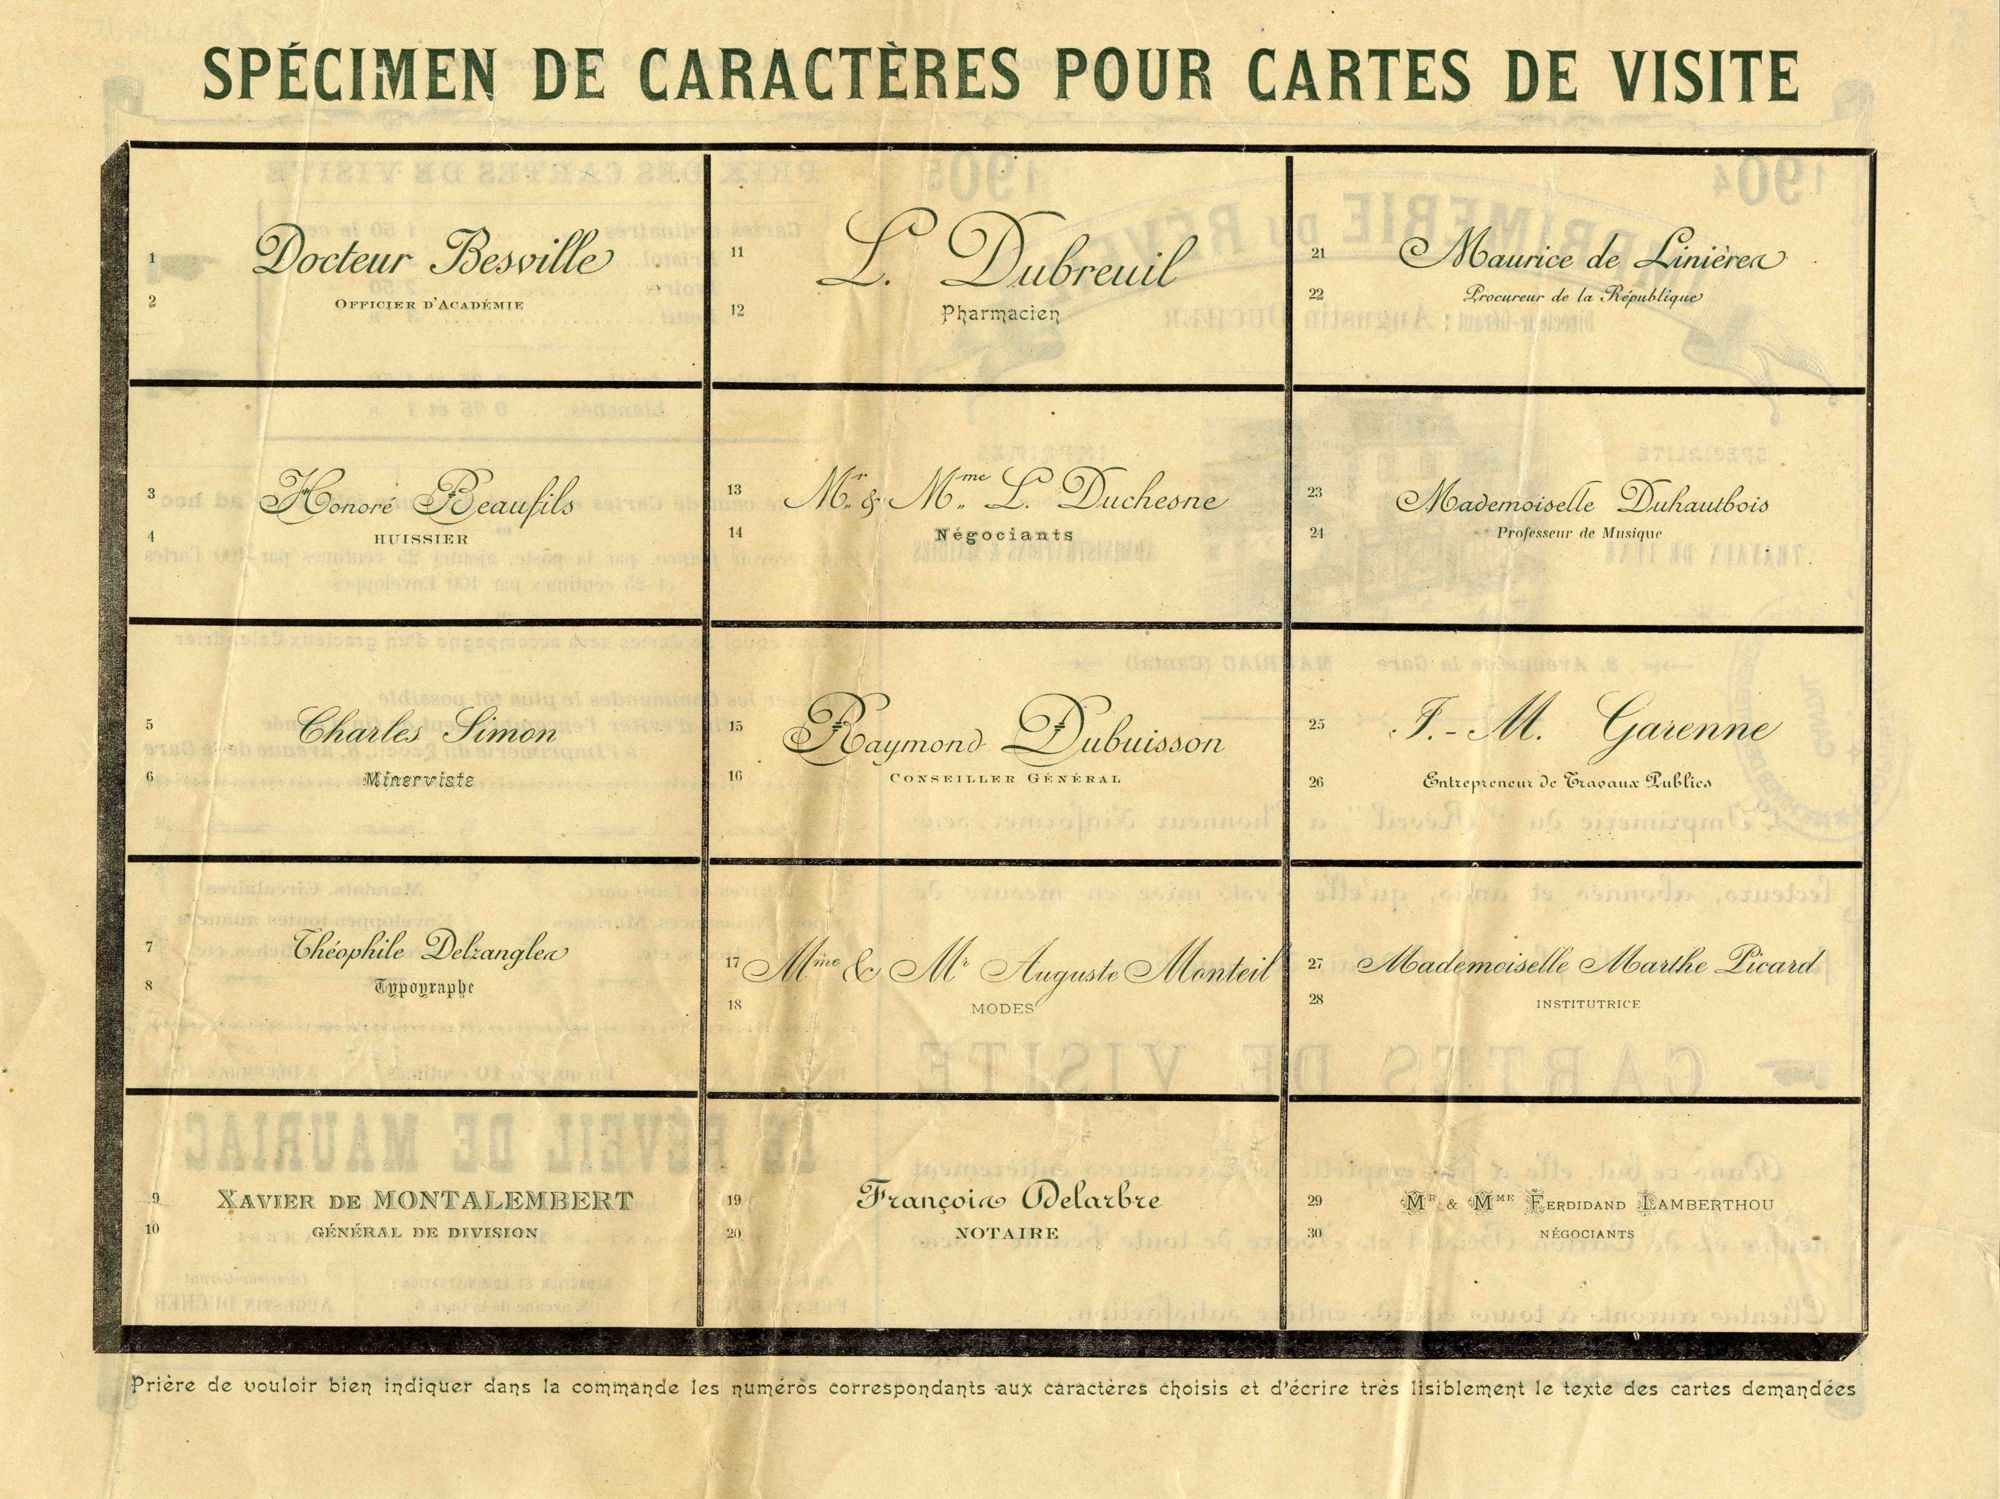 SPÉCIMEN DE CARACTÈRES POUR CARTES DE VISITE
1 Docteur Besville
2 OFFICIER D'ACADÉMIE
3 Honoré Beaufils
4 HUISSIER
5 Charles Simon
6 Minerviste
7 Théophile Delzangles
8 Typographe
9 XAVIER DE MONTALEMBERT
10 GÉNÉRAL DE DIVISION
11 L. Dubreuil
12 Pharmacien
13 Mr. & Mme. L. Duchesne
14 Négociants
15 Raymond Dubuisson
16 CONSEILLER GÉNÉRAL
17 Mme & Mr Auguste Monteil
18 MODES
19 François Delarbre
20 NOTAIRE
21 Maurice de Linières
22 Procureur de la République
23 Mademoiselle Duhautbois
24 Professeur de Musique
25 J.-M. Garenne
26 Entrepreneur de Travaux Publics
27 Mademoiselle Marthe Picard
28 INSTITUTRICE
29 MR & MME FERDIDAND LAMBERTHOU
30 NÉGOCIANTS
Prière de vouloir bien indiquer dans la commande les numéros correspondants aux caractères choisis et d'écrire très lisiblement le texte des cartes demandées